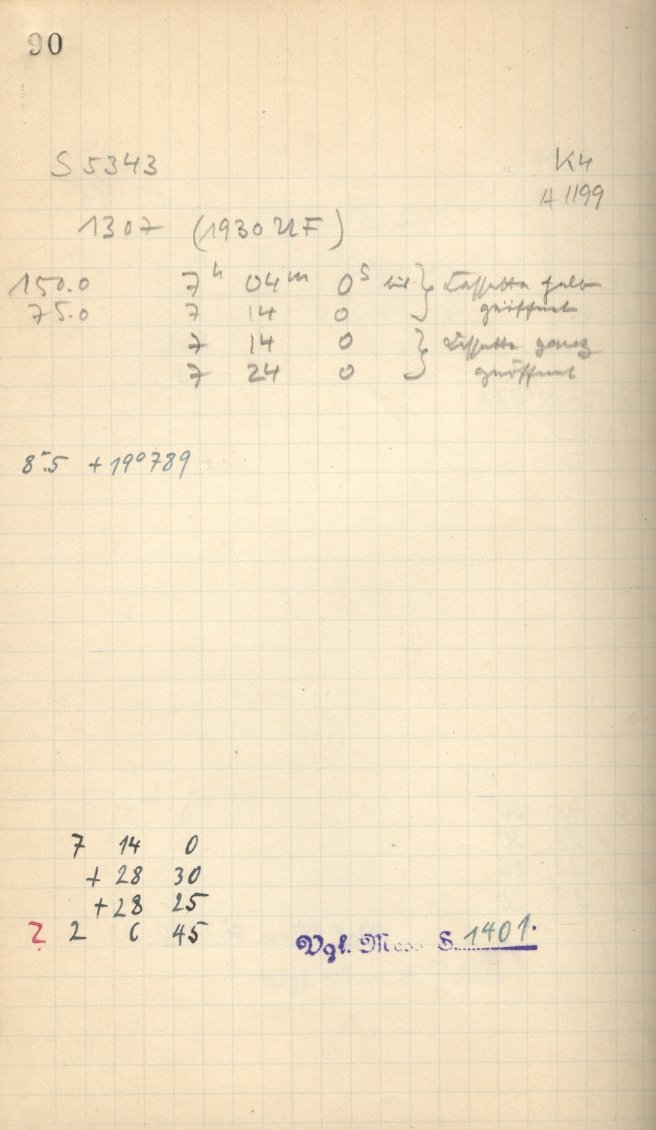 90
S 5343 K4
A 1199
1307 (1930 UF)
150.0 7h 04m 0s bis } Cassette halb
75.0 7 14 0 geöffnet
7 14 0 } Cassette ganz
7 24 0 geöffnet
8m.5 +19°789
7 14 0
+28 30
+28 25
? 2 6 45
Vgl. Mess S. 1401.